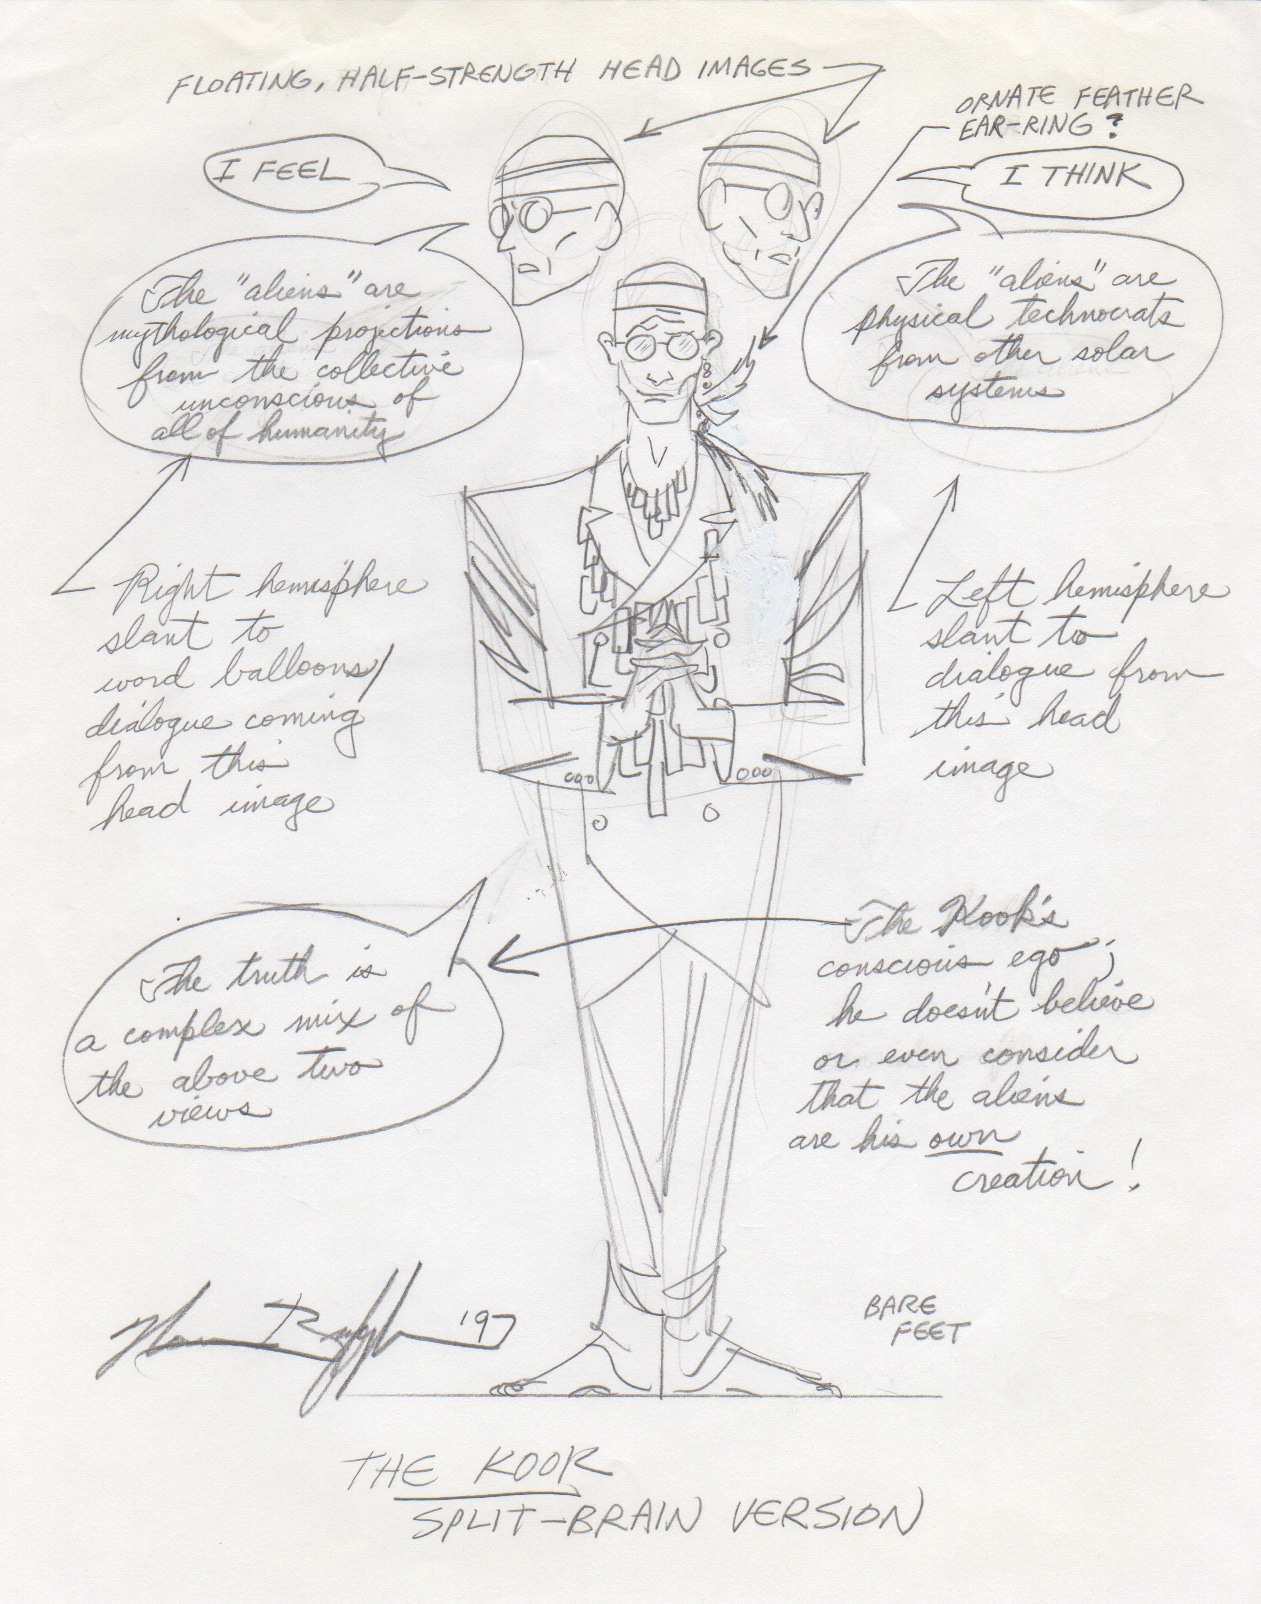 FLOATING, HALF-STRENGTH HEAD IMAGES
ORNATE FEATHER
EAR-RING?
I FEEL
I THINK
The "aliens" are
mythological projections
from the collective
unconscious of
all of humanity
The "aliens" are
physical technocrats
from other solar
systems
Right hemisphere
slant to
word balloons/
dialogue coming
from this
head image
Left hemisphere
slant to
dialogue from
this head
image
The truth is
a complex mix of
the above two
views
The Kook's
conscious ego;
he doesn't believe
or even consider
that the aliens
are his own
creation!
'97
BARE
FEET
THE KOOK
SPLIT-BRAIN VERSION